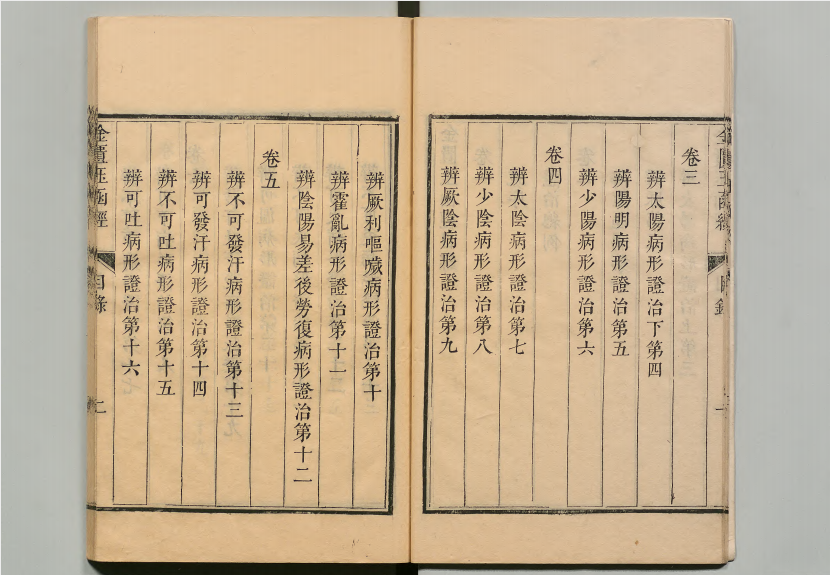 卷三
辨太陽病形證治下第四
辨陽明病形證治第五
辨少陽病形證治第六
卷四
辨太陰病形證治第七
辨少陰病形證治第八
辨厥陰病形證治第九
辨厥利嘔噦病形證治第十
辨霍亂病形證治第十一
辨陰陽易差後勞復病形證治第十二
卷五
辨不可發汗病形證治第十三
辨可發汗病形證治第十四
辨不可吐病形證治第十五
辨可吐病形證治第十六
金匱玉函經
目錄
二